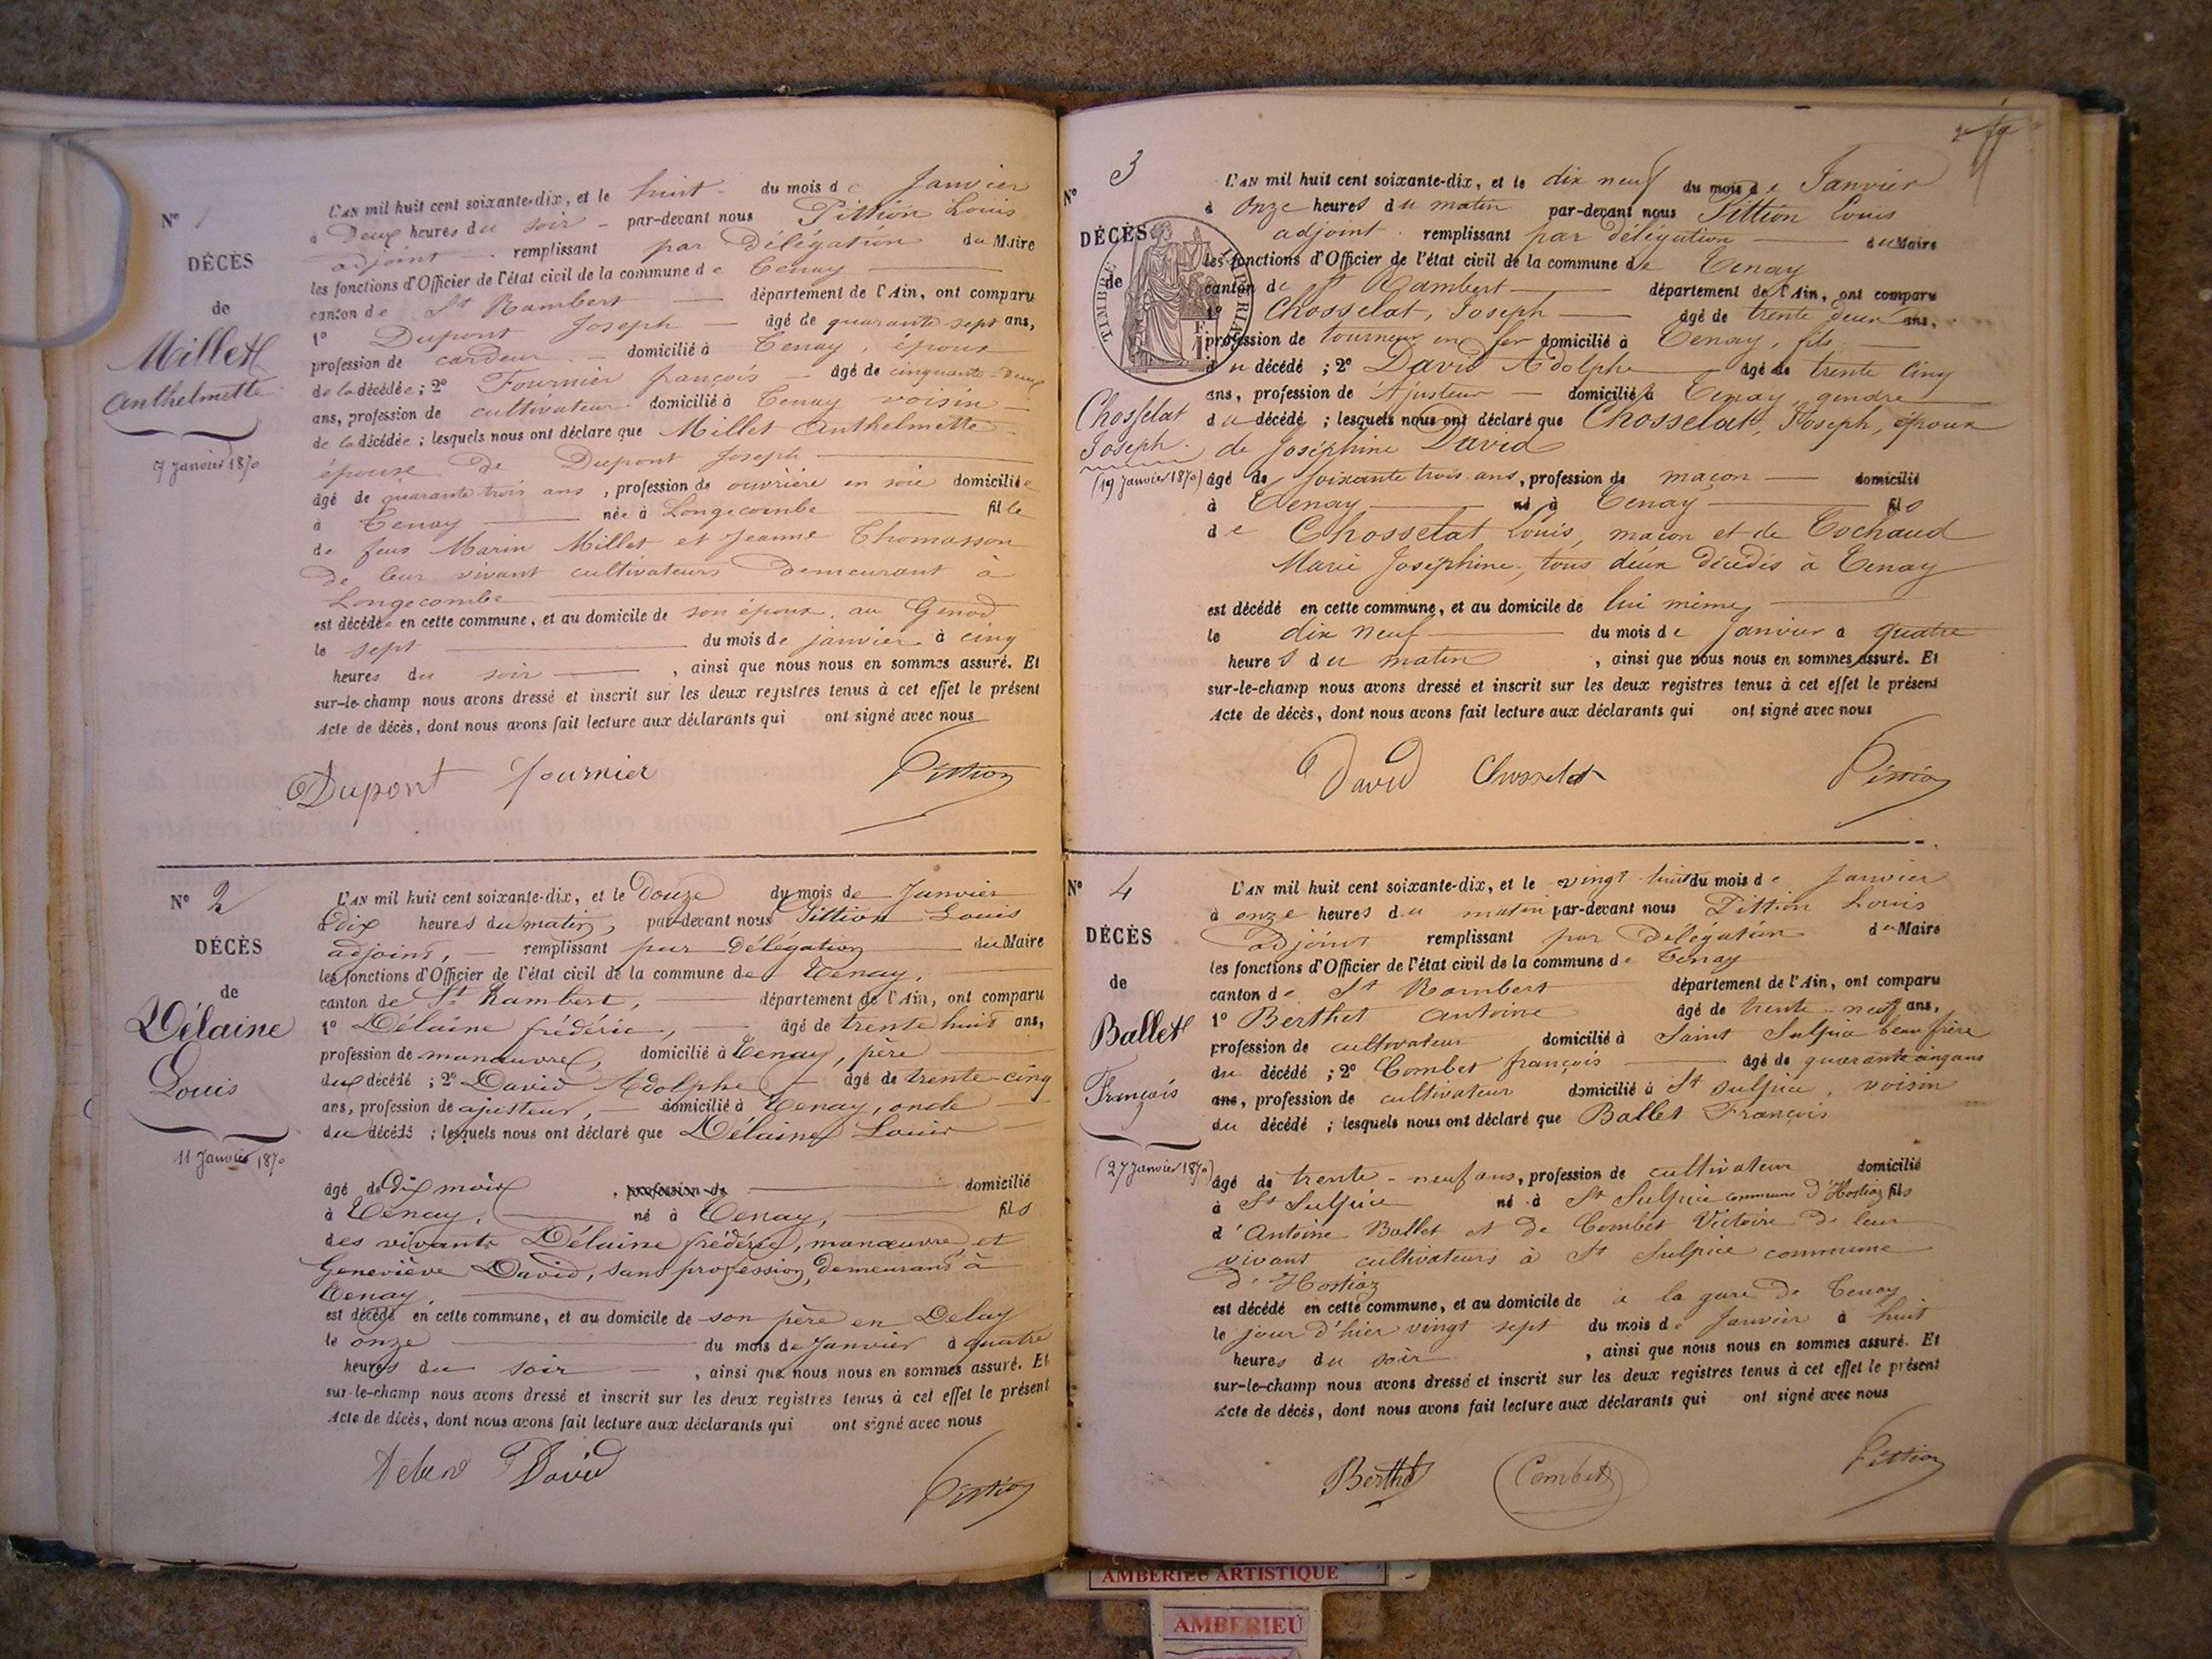 N° 1
DÉCÈS
de
Millet
Anthelmette
7 Janvier 1870
L'AN mil huit cent soixante-dix, et le huit du mois de Janvier
à Deux heures du soir par-devant nous Pittion Louis
adjoint remplissant par Délégation du Maire
les fonctions d'Officier de l'état civil de la commune de Tenay
canton de St Rambert département de l'Ain, ont comparu
1° Dupont Joseph âgé de quarante-sept ans,
profession de cardeur domicilié à Tenay, époux
de la décédée ; 2° Fournier françois âgé de cinquante-deux
ans, profession de cultivateur domicilié à Tenay voisin
de la décédée ; lesquels nous ont déclaré que Millet Anthelmette
épouse de Dupont Joseph
âgé de quarante trois ans, profession de ouvrière en soie domiciliée
à Tenay née à Longecombe fille
de feus Marin Millet et Jeanne Thomasson
de leur vivant cultivateurs demeurant à
Longecombe
est décédée en cette commune, et au domicile de son époux au Genod
le sept du mois de janvier à cinq
heures du soir, ainsi que nous nous en sommes assuré. Et
sur-le-champ nous avons dressé et inscrit sur les deux registres tenus à cet effet le présent
Acte de décès, dont nous avons fait lecture aux déclarants qui ont signé avec nous
Dupont fournier Pittion
N° 2
DÉCÈS
de
Délaine
Louis
11 Janvier 1870
L'AN mil huit cent soixante-dix, et le Douze du mois de Janvier
à dix heures du matin, par-devant nous Pittion Louis
adjoint, remplissant par Délégation du Maire
les fonctions d'Officier de l'état civil de la commune de Tenay,
canton de St Rambert, département de l'Ain, ont comparu
1° Délaine frédéric, âgé de trente huit ans,
profession de manœuvre, domicilié à Tenay, père
du décédé ; 2° David Adolphe âgé de trente-cinq
ans, profession de ajusteur, domicilié à Tenay, oncle
du décédé ; lesquels nous ont déclaré que Délaine Louis
âgé de dix mois, profession de domicilié
à Tenay, né à Tenay, fils
des vivants Délaine frédéric, manœuvre, et
Geneviève David, sans profession, demeurant à
Tenay,
est décédé en cette commune, et au domicile de son père en Delay
le onze du mois de Janvier à quatre
heures du soir, ainsi que nous nous en sommes assuré. Et
sur-le-champ nous avons dressé et inscrit sur les deux registres tenus à cet effet le présent
Acte de décès, dont nous avons fait lecture aux déclarants qui ont signé avec nous
David Pittion
N° 3
DÉCÈS
de
TIMBRE IMPÉRIAL
Chosselat
Joseph.
(19 Janvier 1870)
L'AN mil huit cent soixante-dix, et le dix neuf du mois de Janvier
à Onze heures du matin par-devant nous Pittion Louis
adjoint remplissant par délégation du Maire
les fonctions d'Officier de l'état civil de la commune de Tenay
canton de St Rambert département de l'Ain, ont comparu
1° Chosselat, Joseph âgé de trente deux ans,
profession de tourneur en fer domicilié à Tenay, fils
du décédé ; 2° David Adolphe âgé de trente Cinq
ans, profession de Ajusteur domicilié à Tenay, gendre
du décédé ; lesquels nous ont déclaré que Chosselat, Joseph, époux
de Joséphine David
âgé de Soixante trois ans, profession de maçon domicilié
à Tenay né à Tenay fils
de Chosselat Louis, maçon et de Cochaud
Marie Joséphine, tous deux décédés à Tenay
est décédé en cette commune, et au domicile de lui même
le dix neuf du mois de Janvier à quatre
heures du matin, ainsi que nous nous en sommes assuré. Et
sur-le-champ nous avons dressé et inscrit sur les deux registres tenus à cet effet le présent
Acte de décès, dont nous avons fait lecture aux déclarants qui ont signé avec nous
David Chosselat Pittion
N° 4
DÉCÈS
de
Ballet
François
(27 Janvier 1870)
L'AN mil huit cent soixante-dix, et le vingt-huit du mois de Janvier
à onze heures du matin par-devant nous Pittion Louis
adjoint remplissant par Délégation du Maire
les fonctions d'Officier de l'état civil de la commune de Tenay
canton de St Rambert département de l'Ain, ont comparu
1° Berthet Antoine âgé de trente-neuf ans,
profession de cultivateur domicilié à Saint Sulpice beau frère
du décédé ; 2° Combet françois âgé de quarante cinq ans
ans, profession de cultivateur domicilié à St Sulpice, voisin
du décédé ; lesquels nous ont déclaré que Ballet François
âgé de trente-neuf ans, profession de cultivateur domicilié
à St Sulpice né à St Sulpice commune d'Hostiaz fils
d'Antoine Ballet et de Combet Victoire de leur
vivant cultivateurs à St Sulpice commune
d'Hostiaz
est décédé en cette commune, et au domicile de à la gare de Tenay
le jour d'hier vingt sept du mois de Janvier à huit
heures du soir, ainsi que nous nous en sommes assuré. Et
sur-le-champ nous avons dressé et inscrit sur les deux registres tenus à cet effet le présent
Acte de décès, dont nous avons fait lecture aux déclarants qui ont signé avec nous
Berthet Combet Pittion
AMBERIEU ARTISTIQUE
AMBERIEU